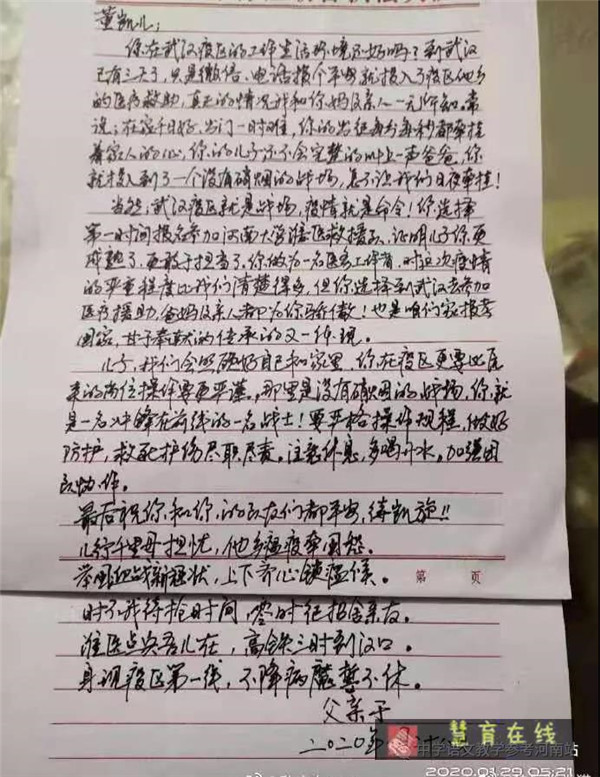 董凯儿：
你在武汉疫区的工作生活环境还好吗？到武汉
已有三天了，只是微信、电话报个平安就投入了疫区他乡
的医疗救助，真正的情况我和你妈及亲人一无所知。常
说：在家千日好，出门一时难，你的出征每分每秒都牵挂
着家人的心，你的儿子还不会完整的叫上一声爸爸，你
就投入到了一个没有硝烟的战场，怎不让我们日夜牵挂！
当然，武汉疫区就是战场，疫情就是命令！你选择
第一时间报名参加河南大学淮医救援队，证明儿子你更
成熟了，更敢于担当了，你做为一名医务工作者，对这次疫情
的严重程度比我们清楚得多，但你选择到武汉去参加
医疗援助，爸妈及亲人都为你骄傲！也是咱们家报孝
国家，甘于奉献的传承的又一体现。
儿子，我们会照顾好自己和家里，你在疫区更要比原
来的岗位操作要更严谨。那里是没有硝烟的战场，你就
是一名冲锋在前线的一名战士！要严格操作规程，做好
防护，救死护伤尽职尽责。注意休息，多喝开水。加强团
队协作。
最后祝你和你的队友们都平安，待凯旋!!
儿行千里母担忧，他乡瘟疫牵国愁。
举国血战新冠状，上下齐心锁瘟侯。
时不我待抢时间，零时征招舍亲友。
淮医点兵吾儿在，高铁三时到汉口。
身现疫区第一线，不降病魔誓不休。
父亲于
二〇二〇年
第 页
慧育在线
中学语文教学参考河南站
2020.01.29 05:21